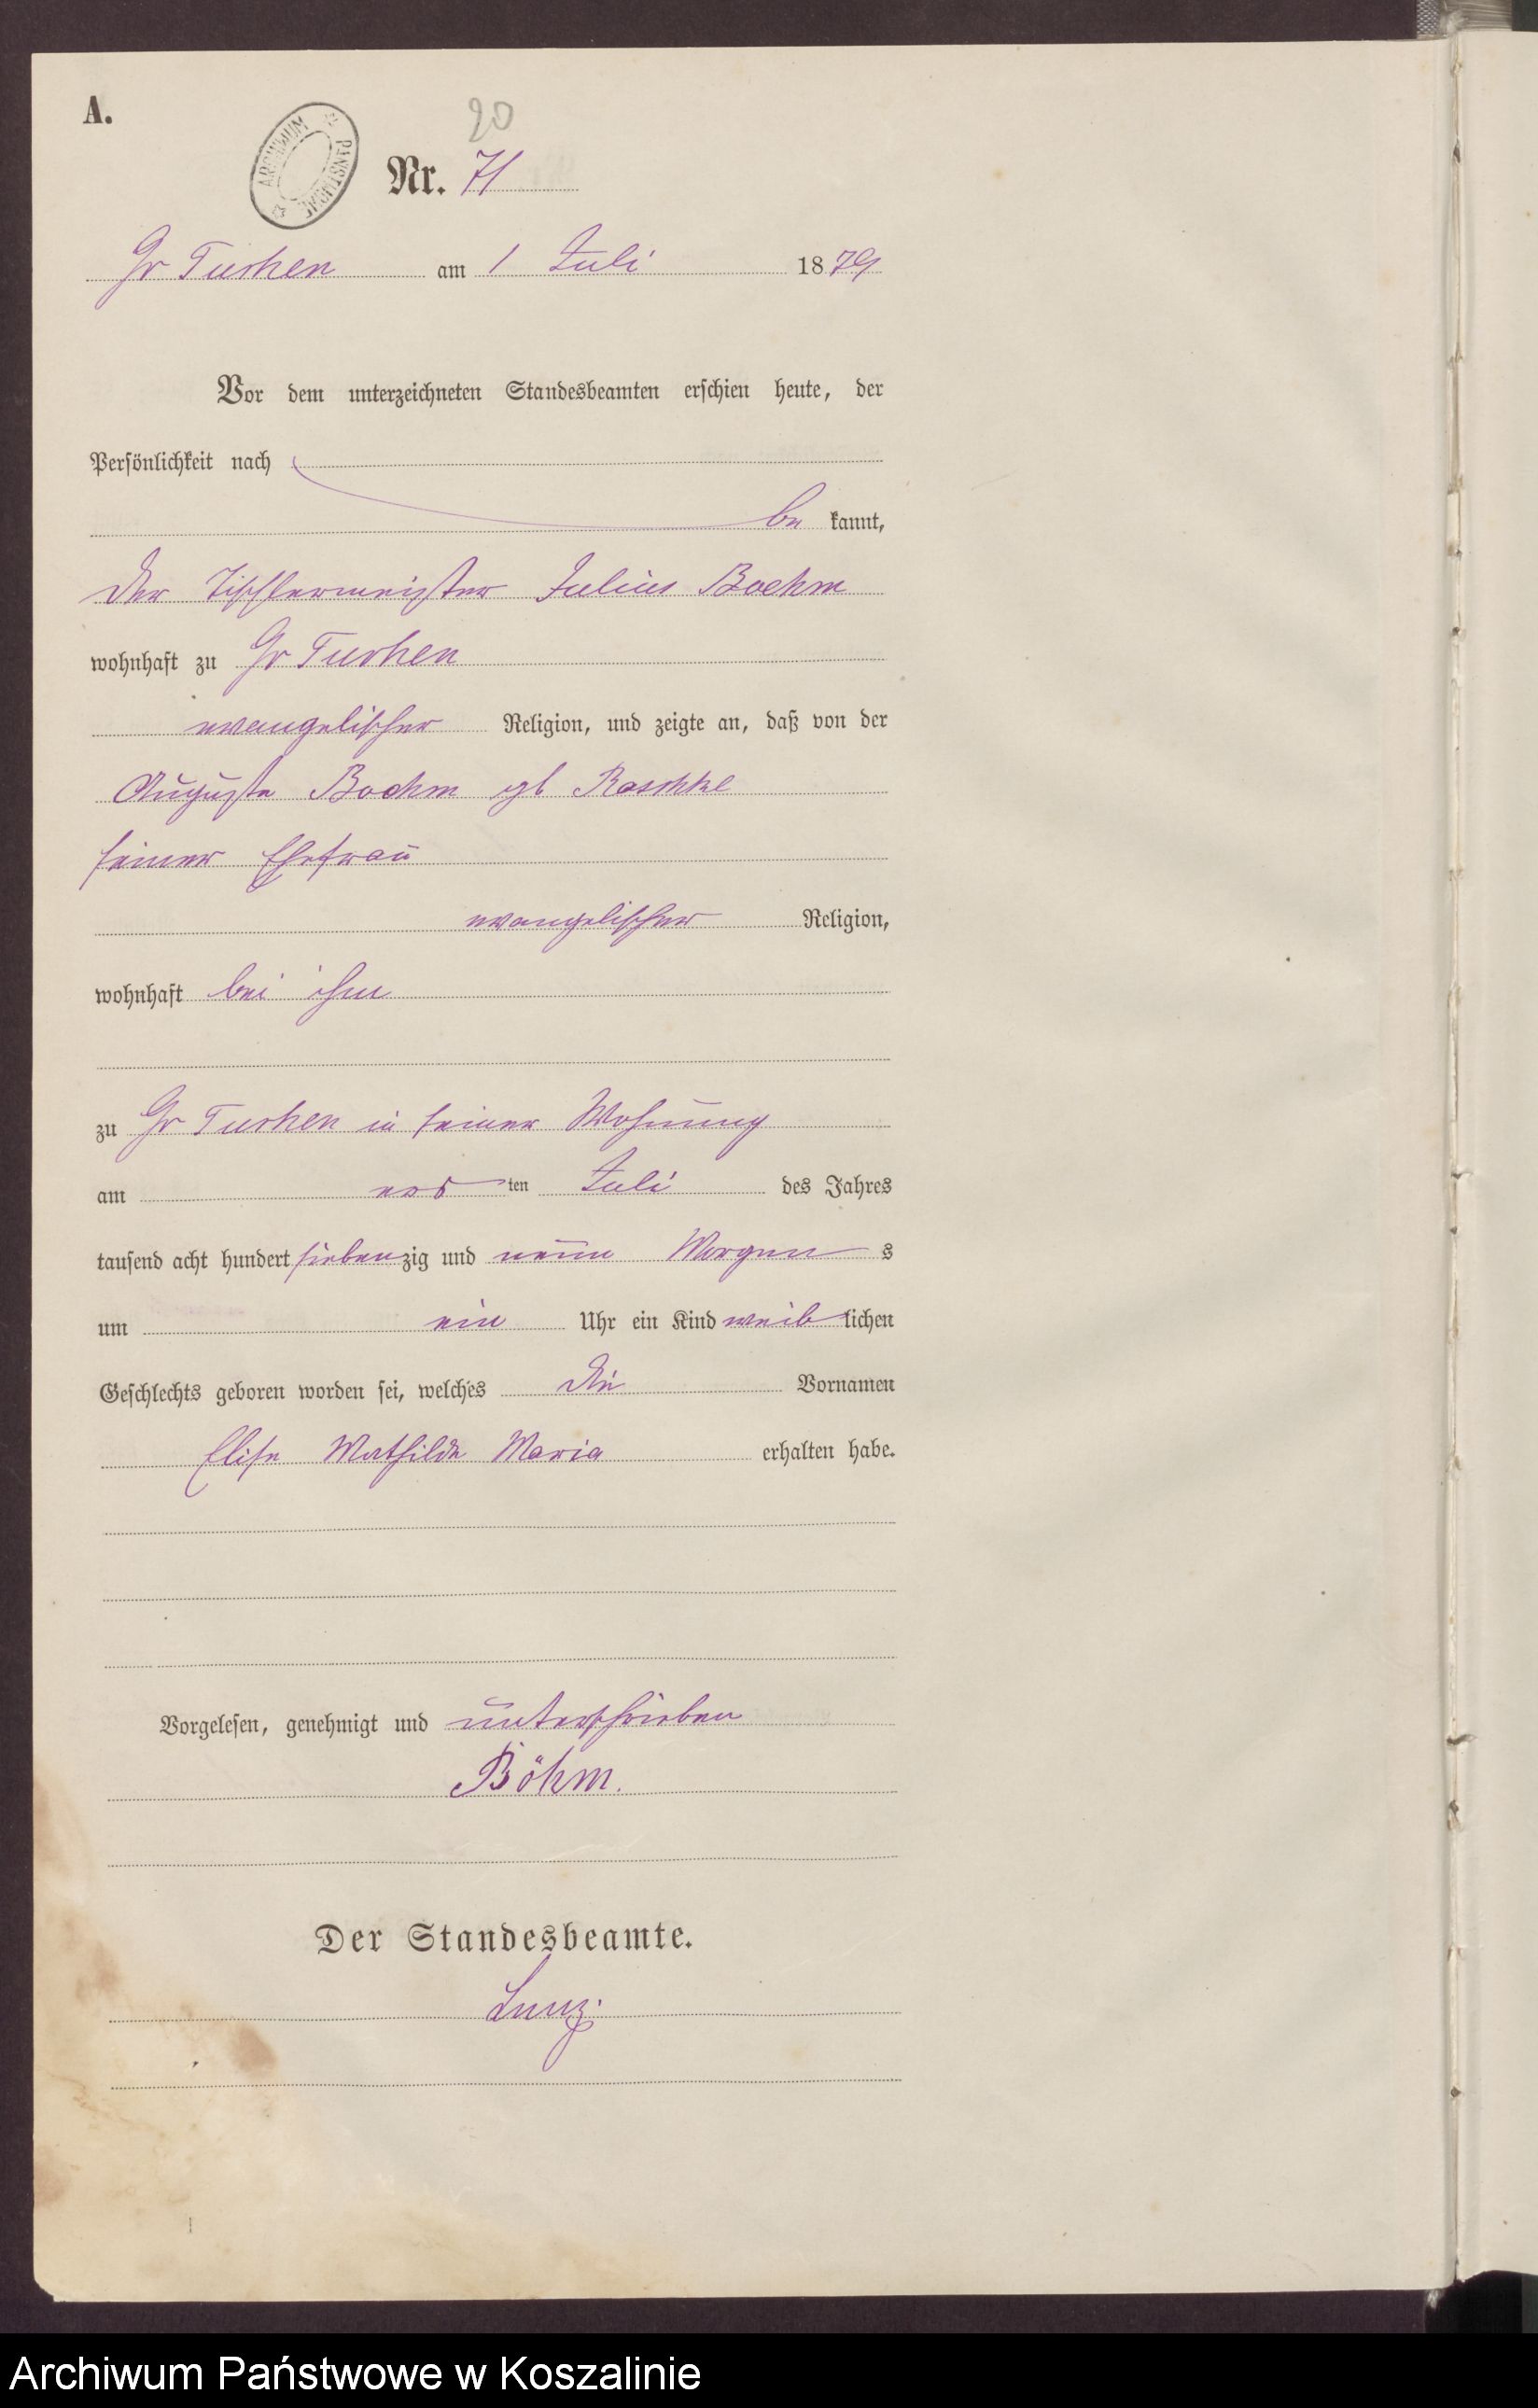 A.
20
ARCHIWUM PAŃSTWOWE
Nr. 71
Gr Tuchen am 1 Juli 1879
Vor dem unterzeichneten Standesbeamten erschien heute, der
Persönlichkeit nach
be kannt,
der Tischlermeister Julius Boehm
wohnhaft zu Gr Tuchen
evangelischer Religion, und zeigte an, daß von der
Auguste Boehm gb Raschke
seiner Ehefrau
evangelischer Religion,
wohnhaft bei ihm
zu Gr Tuchen in seiner Wohnung
am ersten Juli des Jahres
tausend acht hundert siebenzig und neun Morgens
um ein Uhr ein Kind weiblichen
Geschlechts geboren worden sei, welches die Vornamen
Elise Mathilde Maria erhalten habe.
Vorgelesen, genehmigt und unterschrieben
Böhm.
Der Standesbeamte.
Archiwum Państwowe w Koszalinie